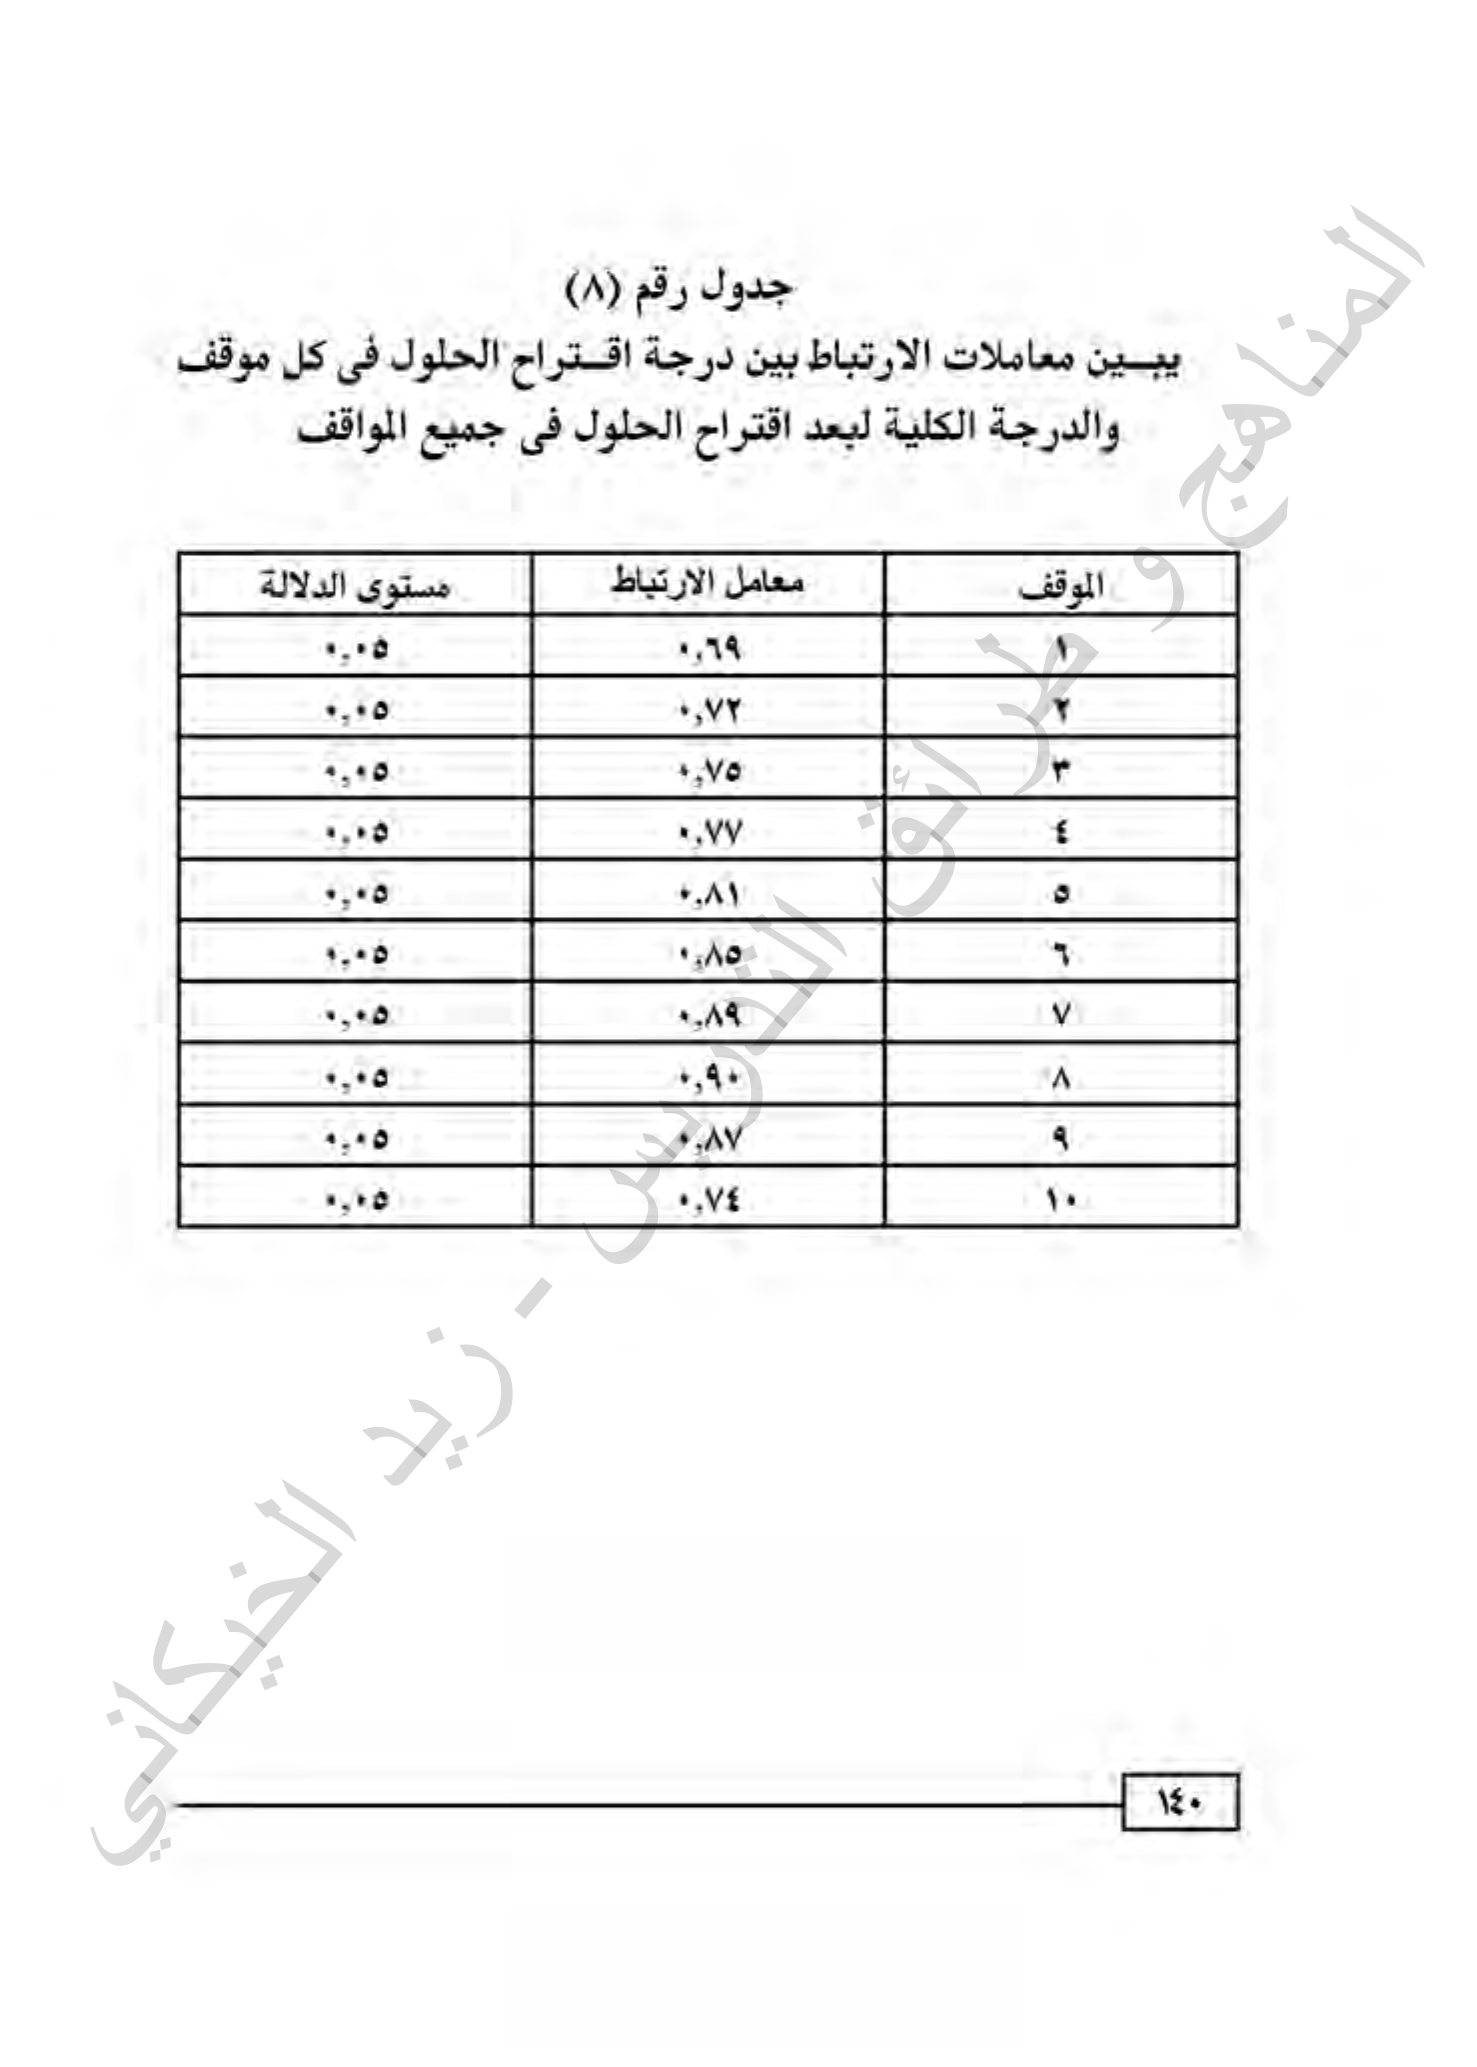 جدول رقم (٨)
يبـــين معاملات الارتباط بين درجة اقـــتراح الحلول فى كل موقف
والدرجة الكلية لبعد اقتراح الحلول فى جميع المواقف
الموقف معامل الارتباط مستوى الدلالة
١ ٠,٦٩ ٠,٠٥
٢ ٠,٧٢ ٠,٠٥
٣ ٠,٧٥ ٠,٠٥
٤ ٠,٧٧ ٠,٠٥
٥ ٠,٨١ ٠,٠٥
٦ ٠,٨٥ ٠,٠٥
٧ ٠,٨٩ ٠,٠٥
٨ ٠,٩٠ ٠,٠٥
٩ ٠,٨٧ ٠,٠٥
١٠ ٠,٧٤ ٠,٠٥
المناهج و طرائق التدريس - زيد الخيكاني
١٤٠